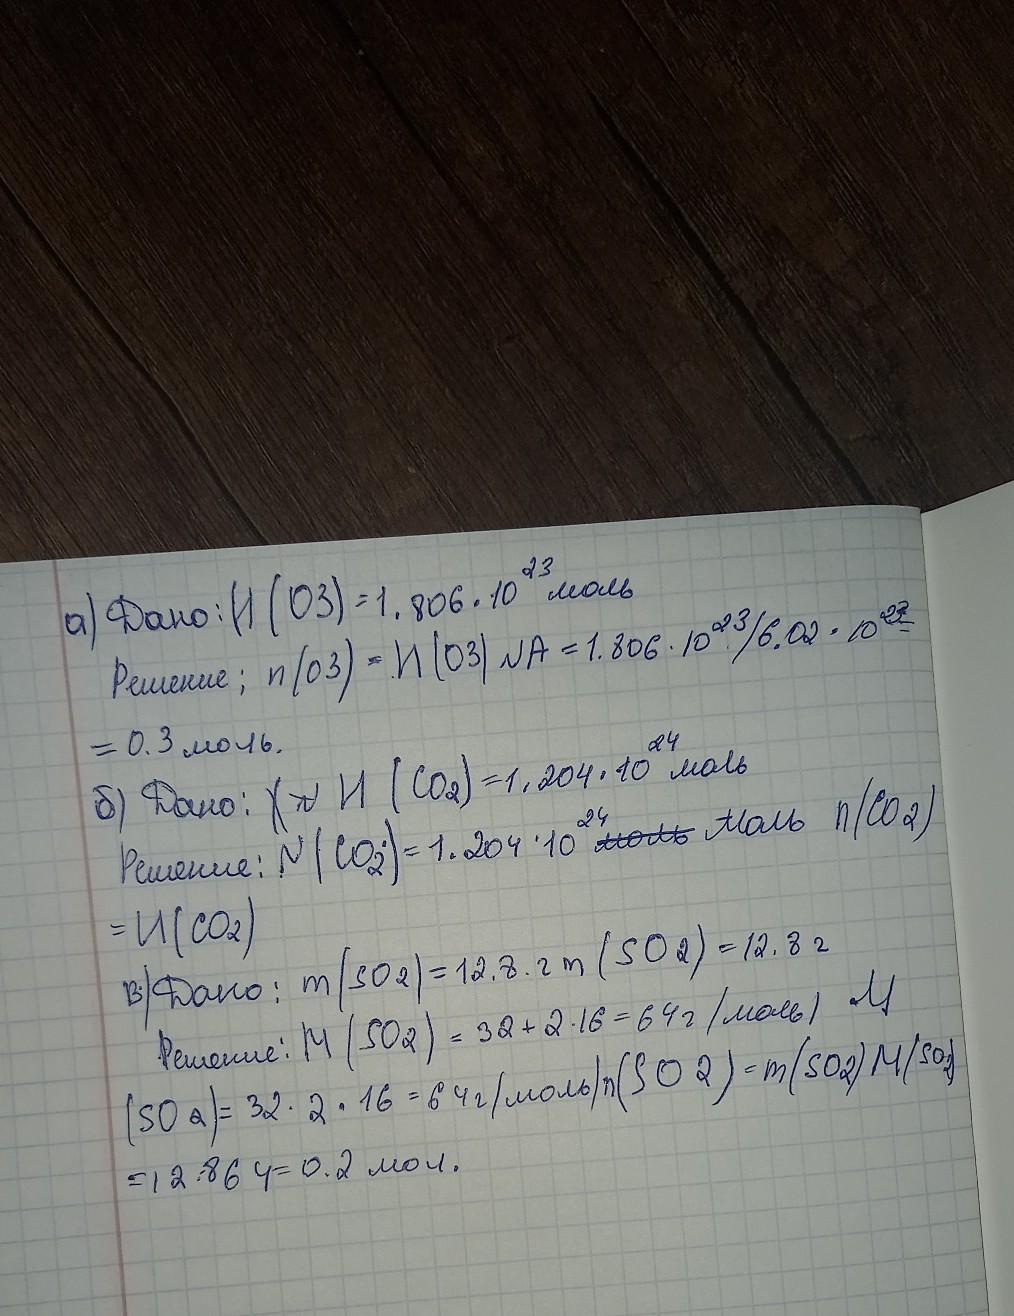 а) Дано: И (О3) = 1.806 · 10²³ моль
Решение; n(О3) = И(О3) NA = 1.806 · 10²³/6.02 · 10²³
= 0.3 моль.
б) Дано: И (CO₂) = 1.204 · 10²⁴ моль
Решение: N(CO₂) = 1.204 · 10²⁴ моль моль n(CO₂)
= И(CO₂)
в) Дано: m(SO₂) = 12.8. г m (SO₂) = 12.8 г
Решение: М (SO₂) = 32 + 2 · 16 = 64 г/моль) М
(SO₂) = 32 · 2 · 16 = 64 г/моль) n(SO2) = m(SO2) М(SO₂)
= 12.864 = 0.2 мол.